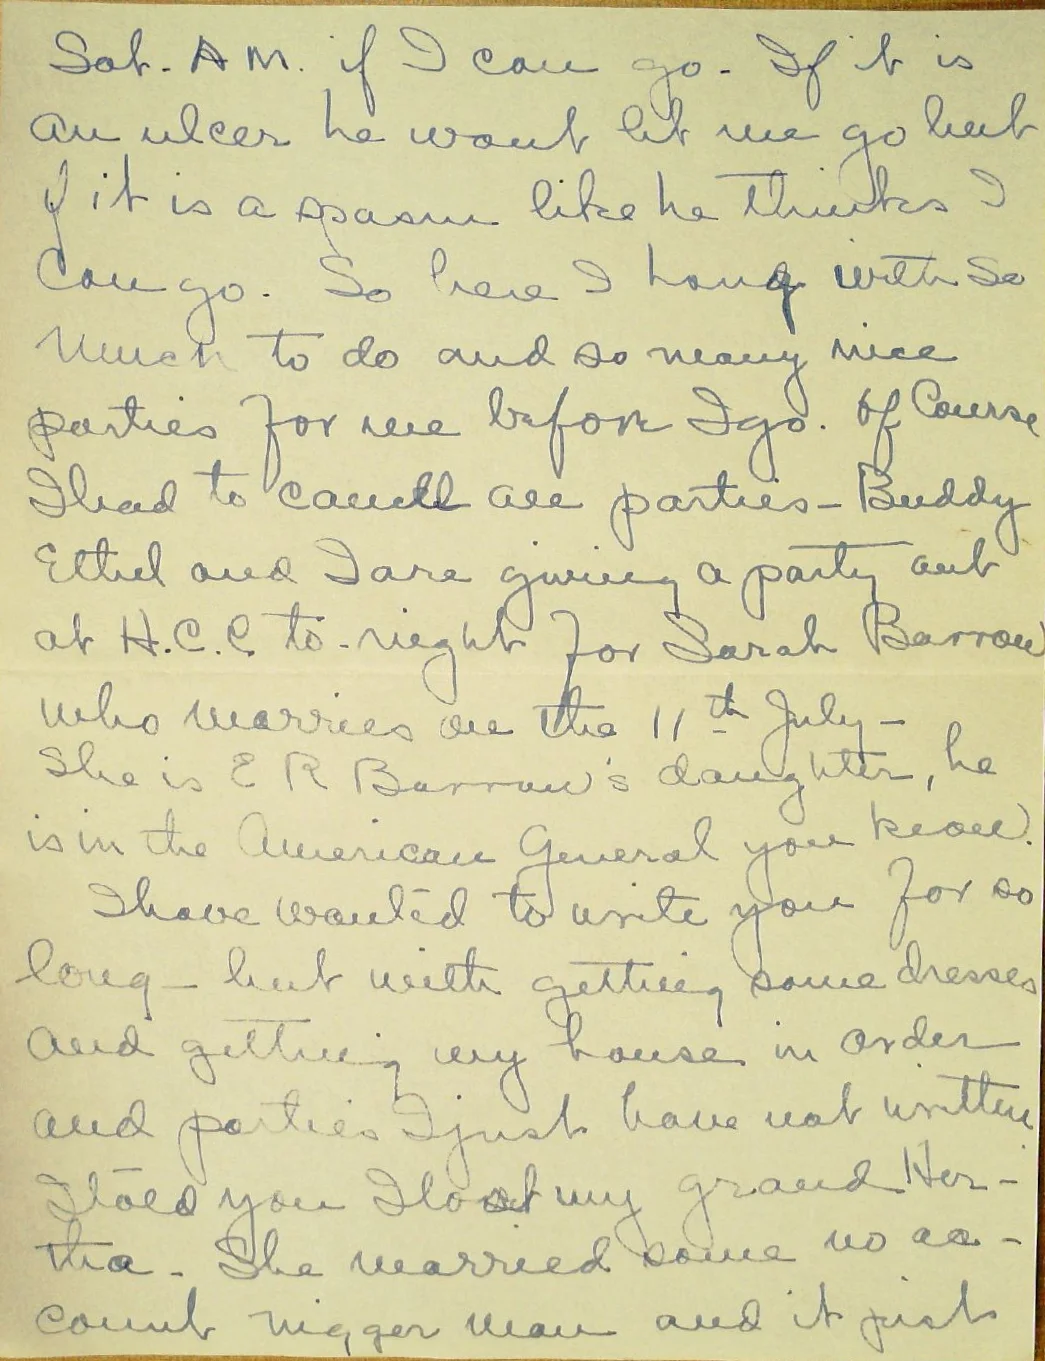 Sat. AM. if I can go. If it is
an ulcer he wont let me go but
if it is a spasm like he thinks I
can go. So here I hang with so
much to do and so many nice
parties for me before I go. Of Course
I had to cancell all parties - Buddy
Ethel and I are giving a party out
at H.C.C. to-night for Sarah Barrow
who marries on the 11th July -
She is E R Barrow's daughter, he
is in the American General you know.
I have wanted to write you for so
long - but with getting some dresses
and getting my house in order
and parties I just have not written
I told you I lost my grand Her-
tha - She married some no ac-
count nigger man and it just